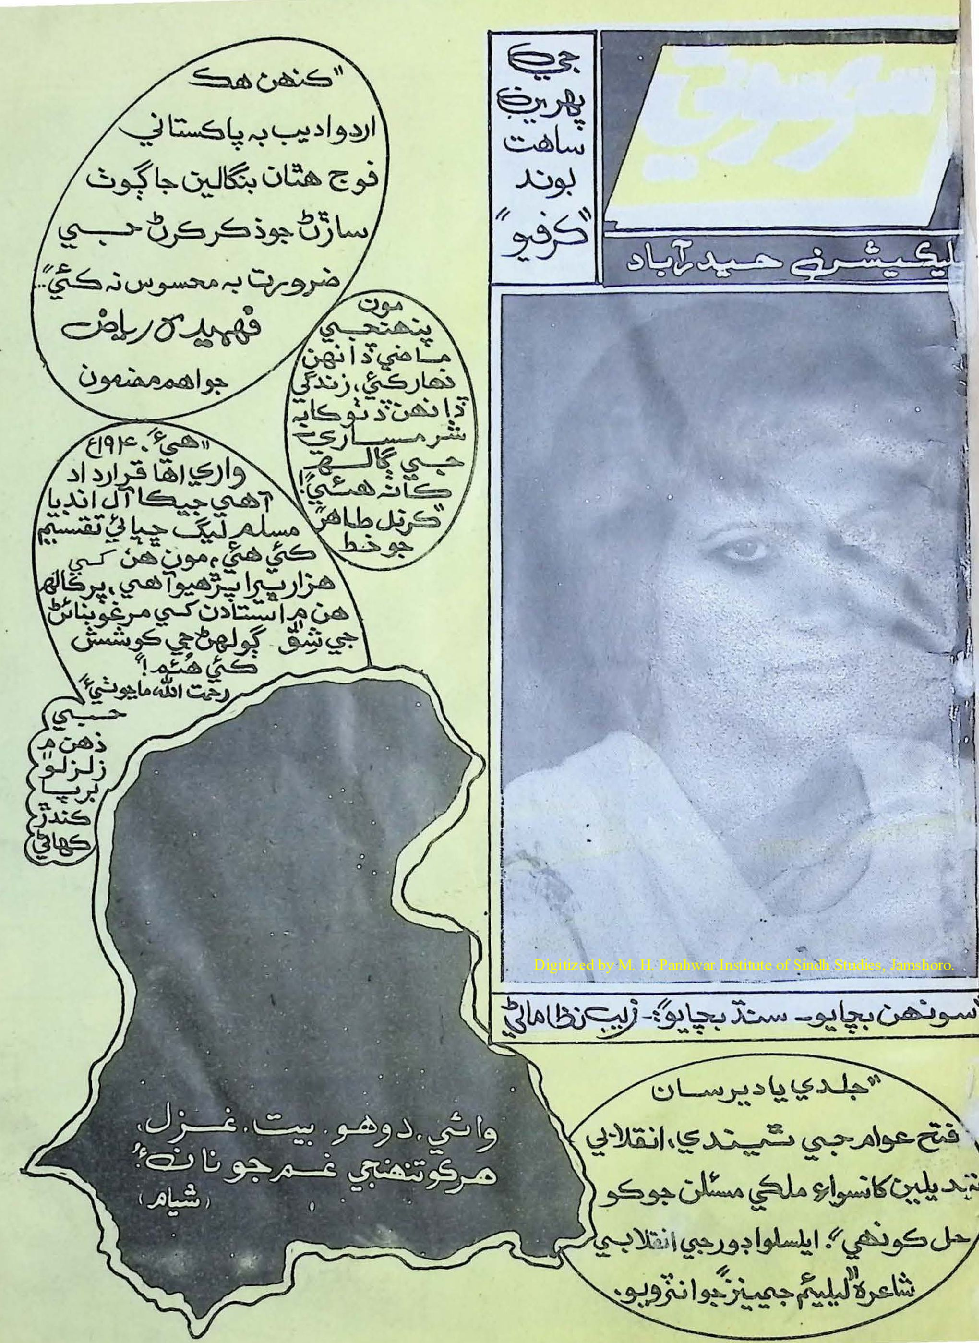 سوسوتي
جي
پهرين
ساهت
بوند
”ڪرفيو“
پبليڪيشنز حيدرآباد
”ڪنهن هڪ
اردو اديب به پاڪستاني
فوج هٿان بنگالين جا ڳوٺ
ساڙڻ جو ذڪر ڪرڻ جي
ضرورت به محسوس نه ڪئي“..
فهميده رياض
جو اهم مضمون
مون
پنهنجي
ماضي ڏانهن
نهار ڪئي، زندگي
ڏانهن ڏٺو ڪابه
شرمساري
جي ڳالهه
ڪانه هئي“!
”ڪرنل طاهر“
جو خط
”هيءَ ۱۹۴۰ع
واري اها قرارداد
آهي جيڪا آل انڊيا
مسلم ليگ ڇپائي تقسيم
ڪئي هئي، مون هن کي
هزار ڀيرا پڙهيو آهي، پر ڪالهه
هن ۾ استادن کي مرغو بنائڻ
جي شق ڳولهڻ جي ڪوشش
ڪئي هُئم!“
رحمت الله ماڃوٺيءَ
جي
ذهن ۾
زلزلو
برپا
ڪندڙ
ڪهاڻي
وائي، دوهو، بيت، غزل،
هرڪو تنهنجي غم جو نانءُ!
(شيام)
Digitized by M. H. Panhwar Institute of Sindh Studies, Jamshoro.
”سونهن بچايو۔ سنڌ بچايو“:۔ زيب نظاماڻي
”جلدي يا دير سان
فتح عوام جي ٿيندي، انقلابي
تبديلين کانسواءِ ملڪي مسئلن جو ڪو
حل ڪونهي“. ايلسلواڊور جي انقلابي
شاعره ”ليليئم جيمينز“ جو انٽرويو.